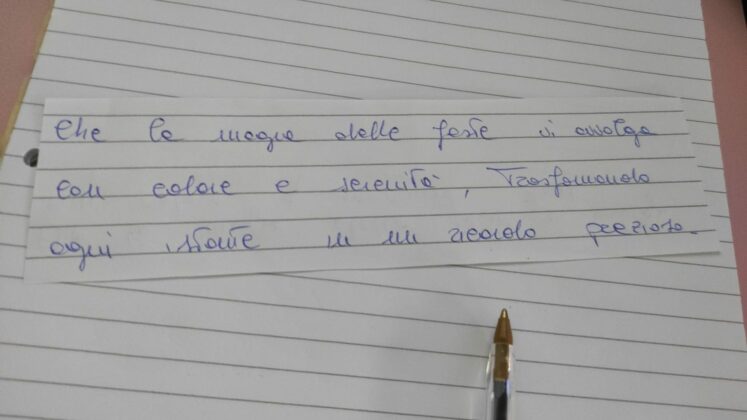 Che la magia delle feste vi avvolga
con calore e serenità, trasformando
ogni istante in un ricordo prezioso.